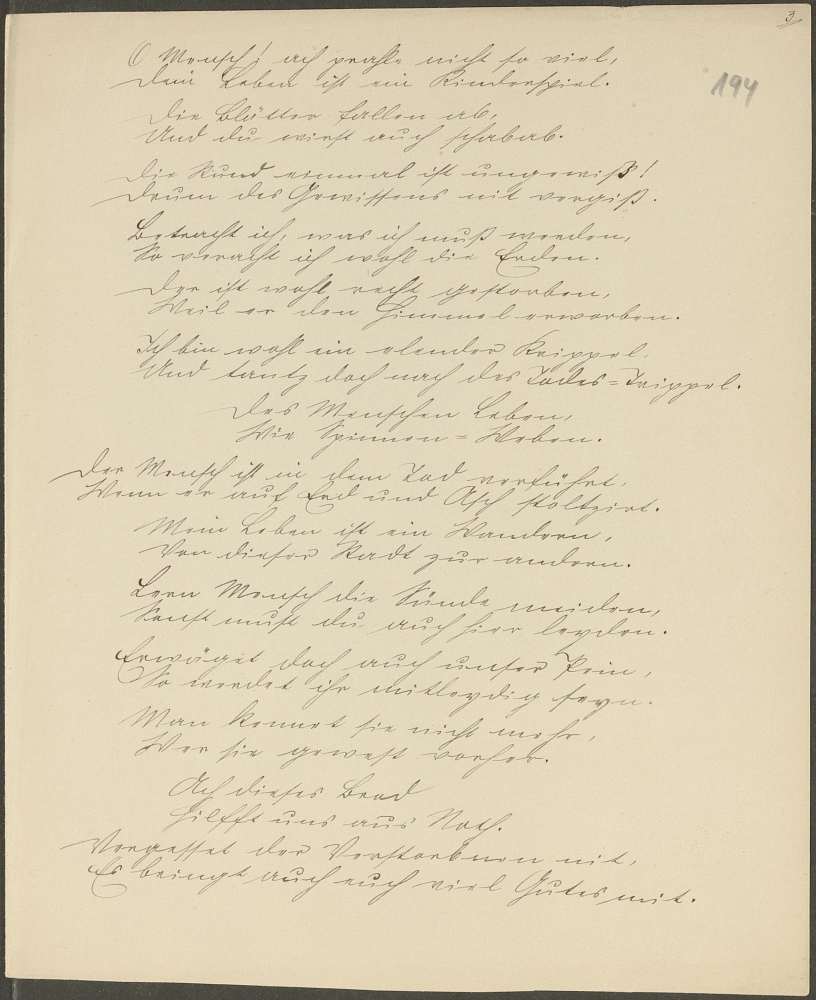 3
194
O Mensch! ach prahle nicht so viel,
Dein Leben ist ein Kinderspiel.
Die Blätter fallen ab,
Und du wirst auch schabab.
Die Stund einmal ist ungewiß!
Drum des Gewissens nit vergiß.
Betracht ich, was ich muß werden,
So veracht ich wohl die Erden.
Der ist wohl recht gestorben,
Weil er den Himmel erworben.
Ich bin wohl ein elender Krippel,
Und tantz doch nach des Todes-Trippel.
Des Menschen Leben,
Wie Spinnen-Weben.
Der Mensch ist in dem Tod verführt,
Wenn er auf Erd und Asch stoltzirt.
Mein Leben ist ein Wandern,
Von dieser Stadt zur andern.
Lern Mensch die Sünde meiden,
Sonst must du auch hier leyden.
Erwäget doch auch unser Pein,
So werdet ihr mitleydig seyn.
Man kennet sie nicht mehr,
Wer sie gewest vorher.
Ach dieses Brod
Hilfft uns aus Noth.
Vergesset der Verstorbnen nit,
Es bringt auch euch viel Gutes mit.